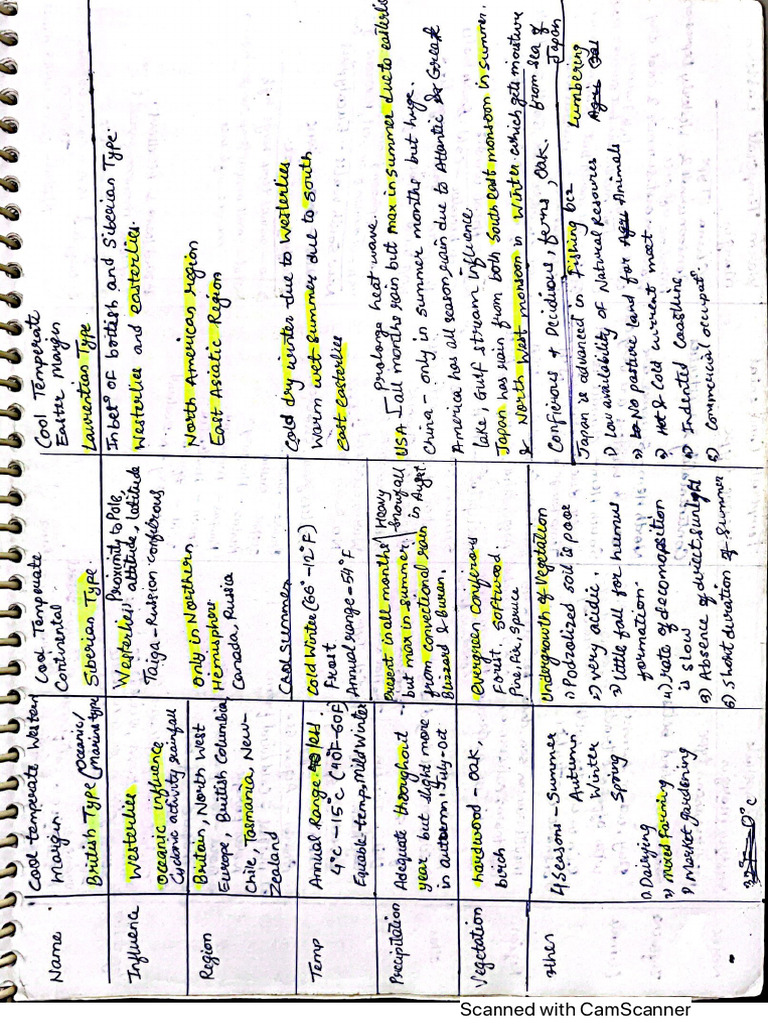 Name
Cool temperate Western
margin
British Type (oceanic/
marine type
Cool Temperate
Continental
Siberian Type
Cool Temperate
Easter Margin
Laurentian Type
Influence
Westerlies
Oceanic influence
Cyclonic activity rainfall
Westerlies Proximity to Pole,
altitude, latitude
Taiga - Russian coniferous
In betn of british and Siberian Type.
Westerlies and easterlies.
Region
Britain, North West
Europe, British Columbia
Chile, Tasmania, New-
Zealand
Only in Northern
Hemisphere
Canada, Russia
North American region
East Asiatic Region
Temp
Annual Range less
4°C - 15°C (40F-60F
Equable temp, Mild Winter
Cool summer
Cold Winter (66°-12°F)
Frost
Annual range - 54°F
Cold dry winter due to Westerlies
Warm wet summer due to south
east easterlies
Precipitation
Adequate throughout
year but slight more
in autumn, July-Oct
Present in all months
but max in summer,
from convectional rain
Blizzard & buran.
Heavy
Snowfall
in August
prolonge heat wave.
USA - all months rain but max in summer due to easterlies
China - only in summer months but huge.
America has all season rain due to Atlantic & Great
lake, Gulf stream influence
Japan has rain from both South East monsoon in summer,
& North West monsoon in Winter which gets moisture
from sea of
Japan
Vegetation
hardwood - oak,
birch
evergreen coniferous
Forest. Softwood.
Pine, Fir, Spruce
Coniferous + Deciduous, ferns, oak.
other
4 Seasons - Summer
Autumn
Winter
Spring
1) Dairying
2) Mixed Farming
3) Market gardening
0°C
Undergrowth of Vegetation
1) Podzolized soil is poor
2) very acidic.
3) little fall for humus
formation.
4) rate of decomposition
is slow
5) Absence of direct sunlight
6) Short duration of summer
Japan is advanced in fishing bcz
1) Low availability of Natural Resources
2) No pasture land for Animals
3) Hot & Cold current meet
4) Indented Coastline.
5) Commercial occupatn
Lumbering
Scanned with CamScanner